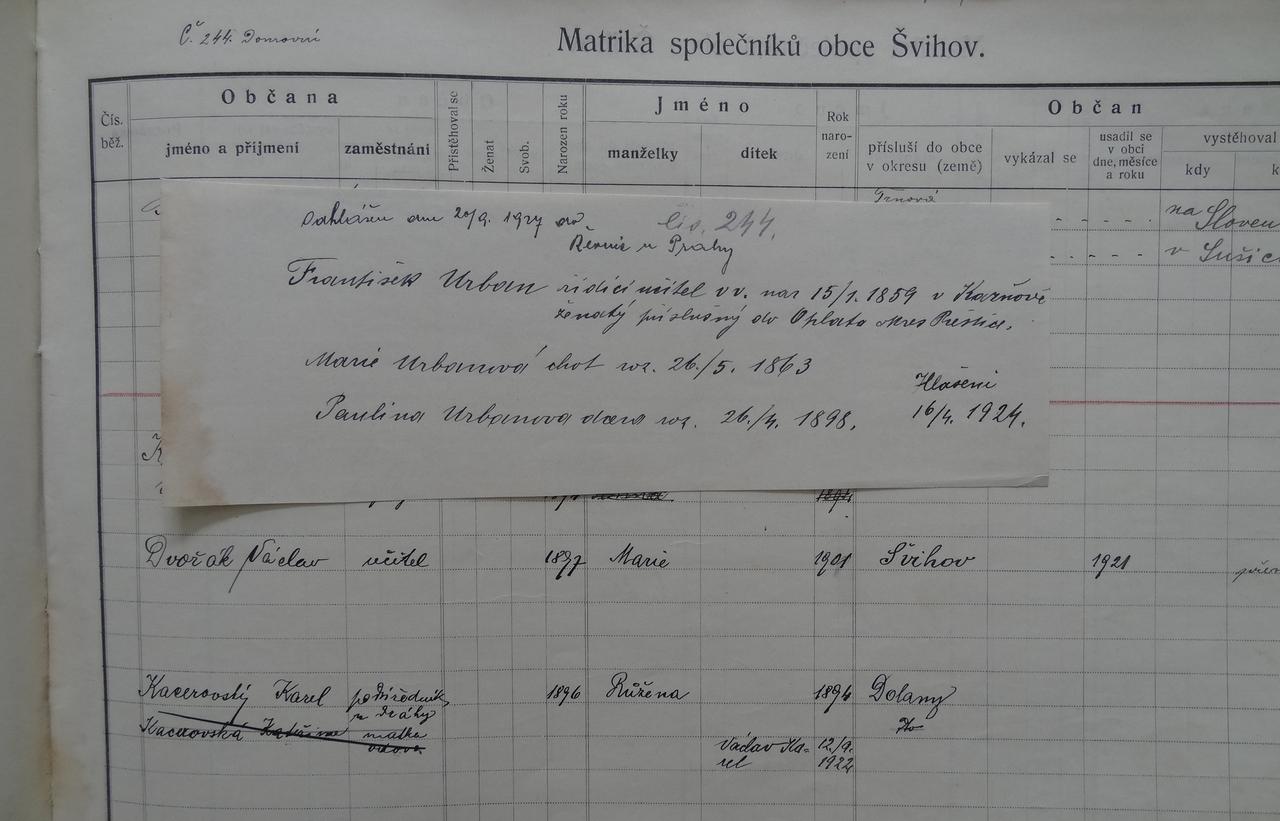 Č. 244. Domovní
Matrika společníků obce Švihov.
Čís. běž.
Občana
jméno a příjmení
zaměstnání
Přistěhoval se
Ženat
Svob.
Narozen roku
Jméno
manželky
dítek
Rok naro- zení
Občan
přísluší do obce v okresu (země)
vykázal se
usadil se v obci dne, měsíce a roku
vystěhoval
kdy
k
Trnová
na Sloven
v Sušic
odhlášen dne 20/9. 1927 do čís. 244.
Řevnic u Prahy
František Urban řídící učitel v v. nar 15/1. 1859 v
ženatý příslušný do okres
Marie Urbanová choť roz. 26./5. 1863
Hlášení
Paulina Urbanova dcera roz. 26/4. 1898. 16/4. 1924.
Dvořák Václav učitel 1897 Marie 1901 Švihov 1921
Kacerovský Karel podúředník 1896 Růžena 1894 Dolany
u dráhy
Kacerovská Kateřina matka
vdova
Václav Ka= 12/9.
rel 1922